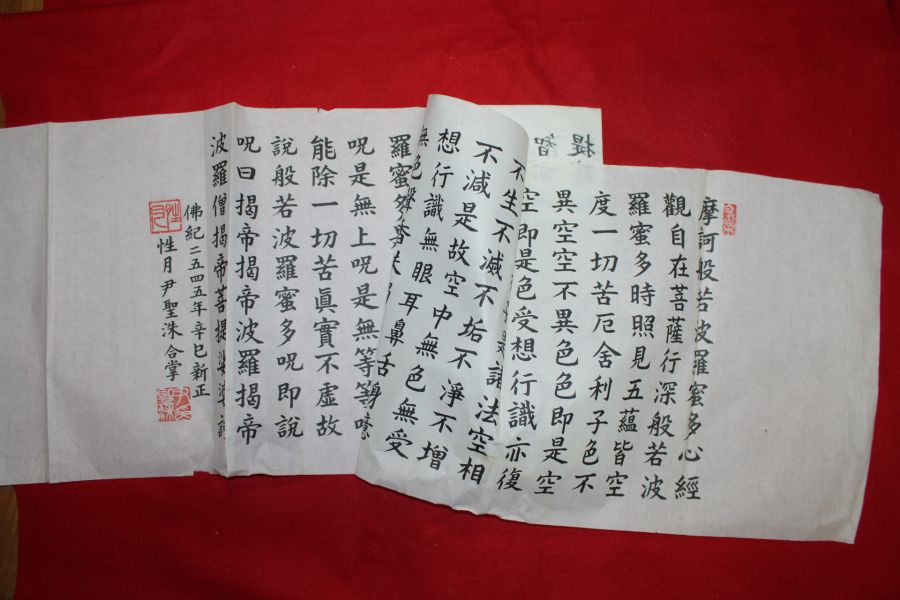 摩訶般若波羅蜜多心經
觀自在菩薩行深般若波
羅蜜多時照見五蘊皆空
度一切苦厄舍利子色不
異空空不異色色即是空
空即是色受想行識亦復
是諸法空相
不生不滅不垢不淨不增
不減是故空中無色無受
想行識無眼耳鼻舌
無色聲香
提
智
羅蜜多
呪是無上呪是無等等
能除一切苦眞實不虛故
說般若波羅蜜多呪即說
呪曰揭帝揭帝波羅揭帝
波羅僧揭帝菩提娑婆訶
佛紀二五四五年辛巳新正
性月尹聖洙合掌